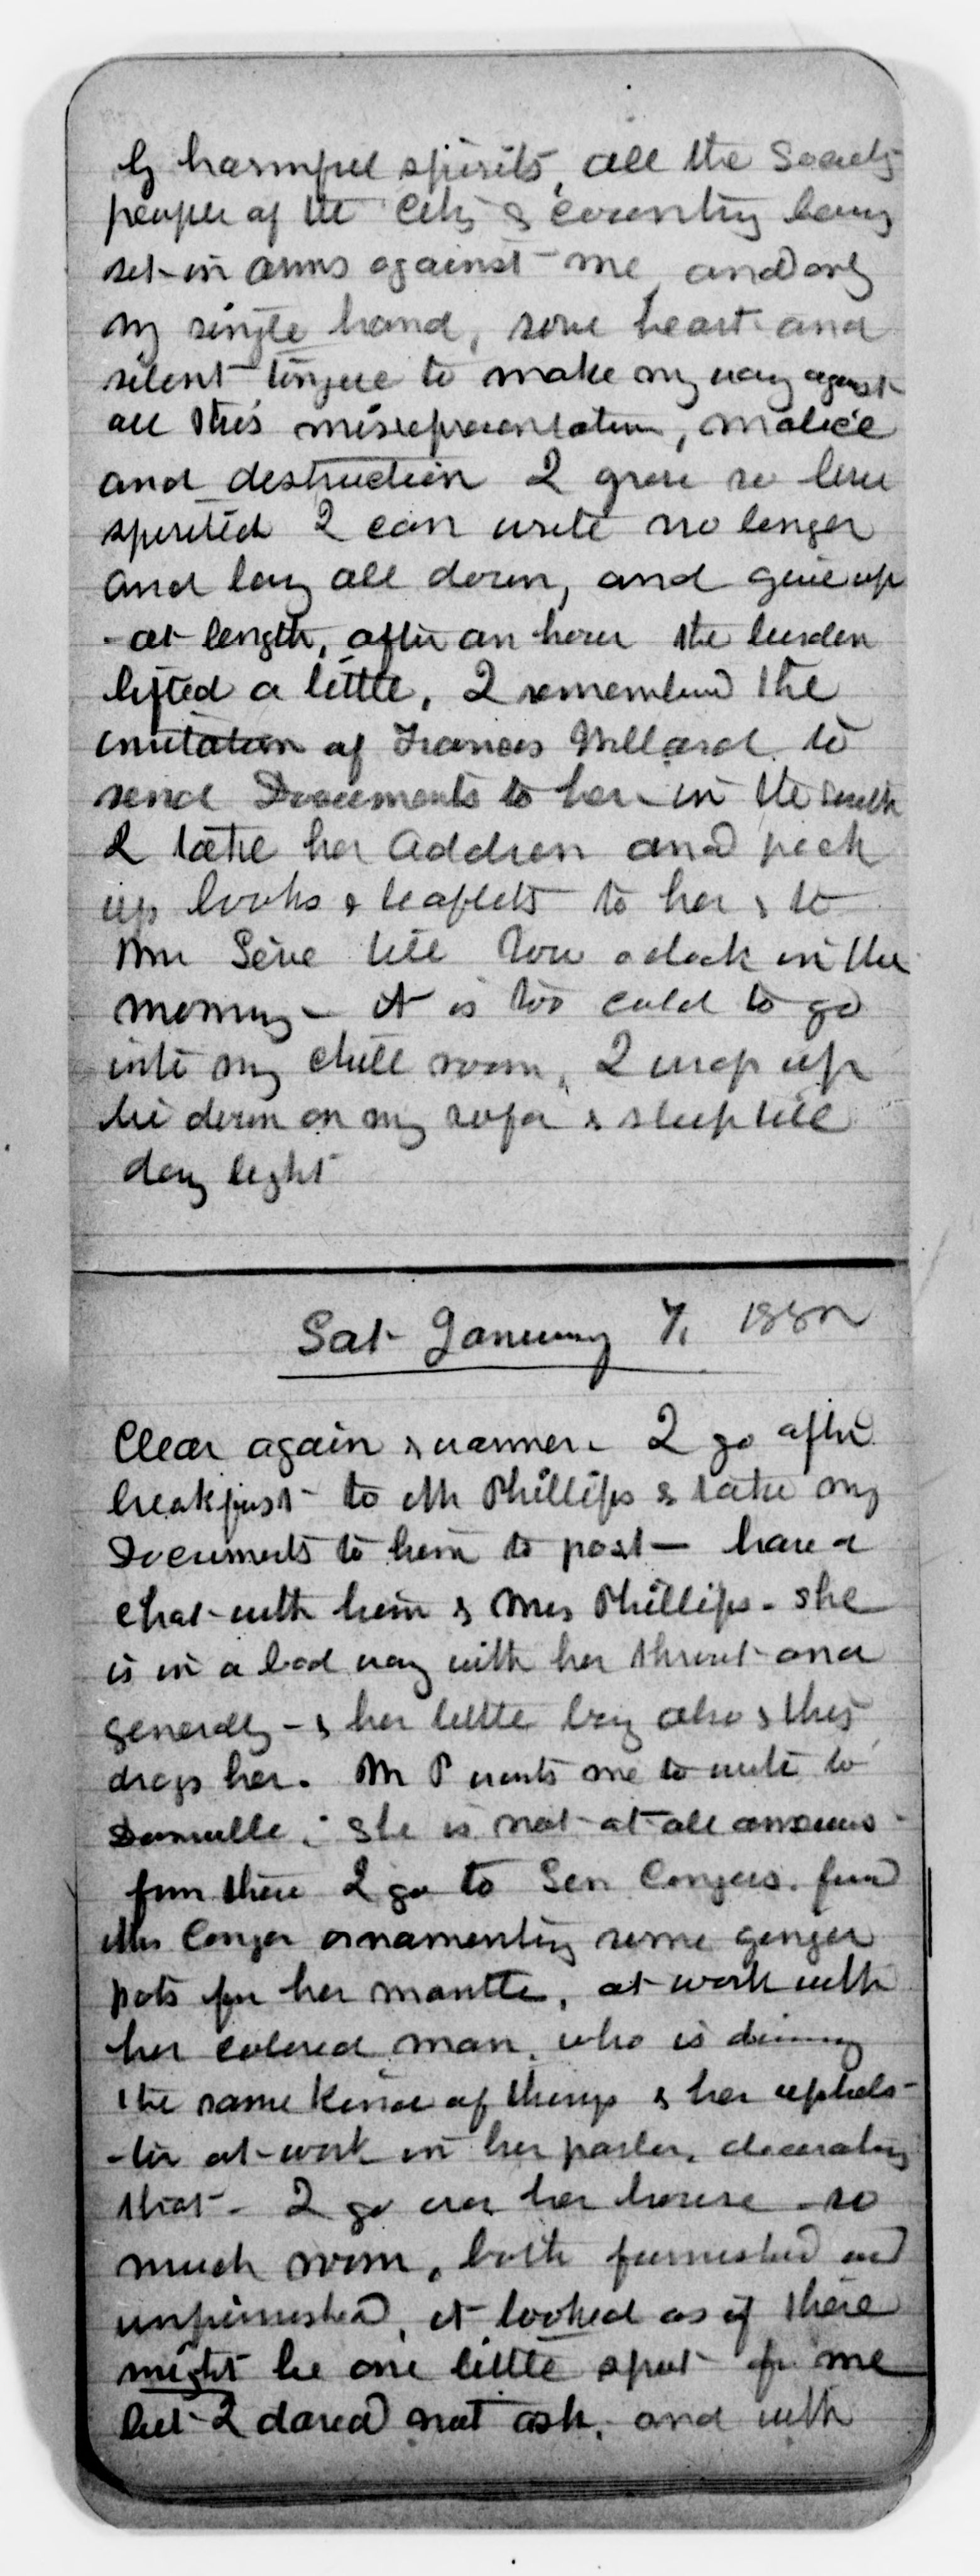 by harmful spirits, all the Society
people of the City & Country being
set in arms against me, and only
my single hand, sore heart and
silent tongue to make my way against
all this misrepresentation, malice
and destruction I grow so low
spirited I can write no longer
and lay all down, and give up
- at length, after an hour the burden
lifted a little, I remembered the
invitation of Frances Willard to
send Documents to her in the South
I take her Address and pick
up books & leaflets to her & to
Mr till two oclock in the
morning - it is too cold to go
into my chill room, I wrap up
lie down on my sofa & sleep till
day light
Sat January 7, 1882
Clear again & warmer. I go after
breakfast to Mr Phillips & take my
Documents to him to post - have a
chat with him & Mrs Phillips. She
is in a bad way with her throat and
generally - & her little boy also & this
drags her. Mr P wants me to write to
Dansville; she is not at all anxious -
from there I go to Sen Congers. find
Mrs Conger ornamenting some ginger
pots for her mantle, at work with
her colored man, who is doing
the same kind of things & her uphols-
-ter at work in her parlor, decorating
that - I go over her house - so
much room, both furnished and
unfurnished, it looked as if there
might be one little spot for me
but I dared not ask, and with